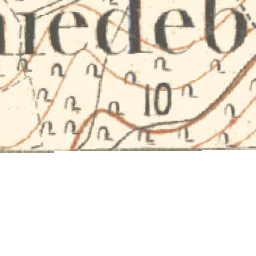 redeb
10